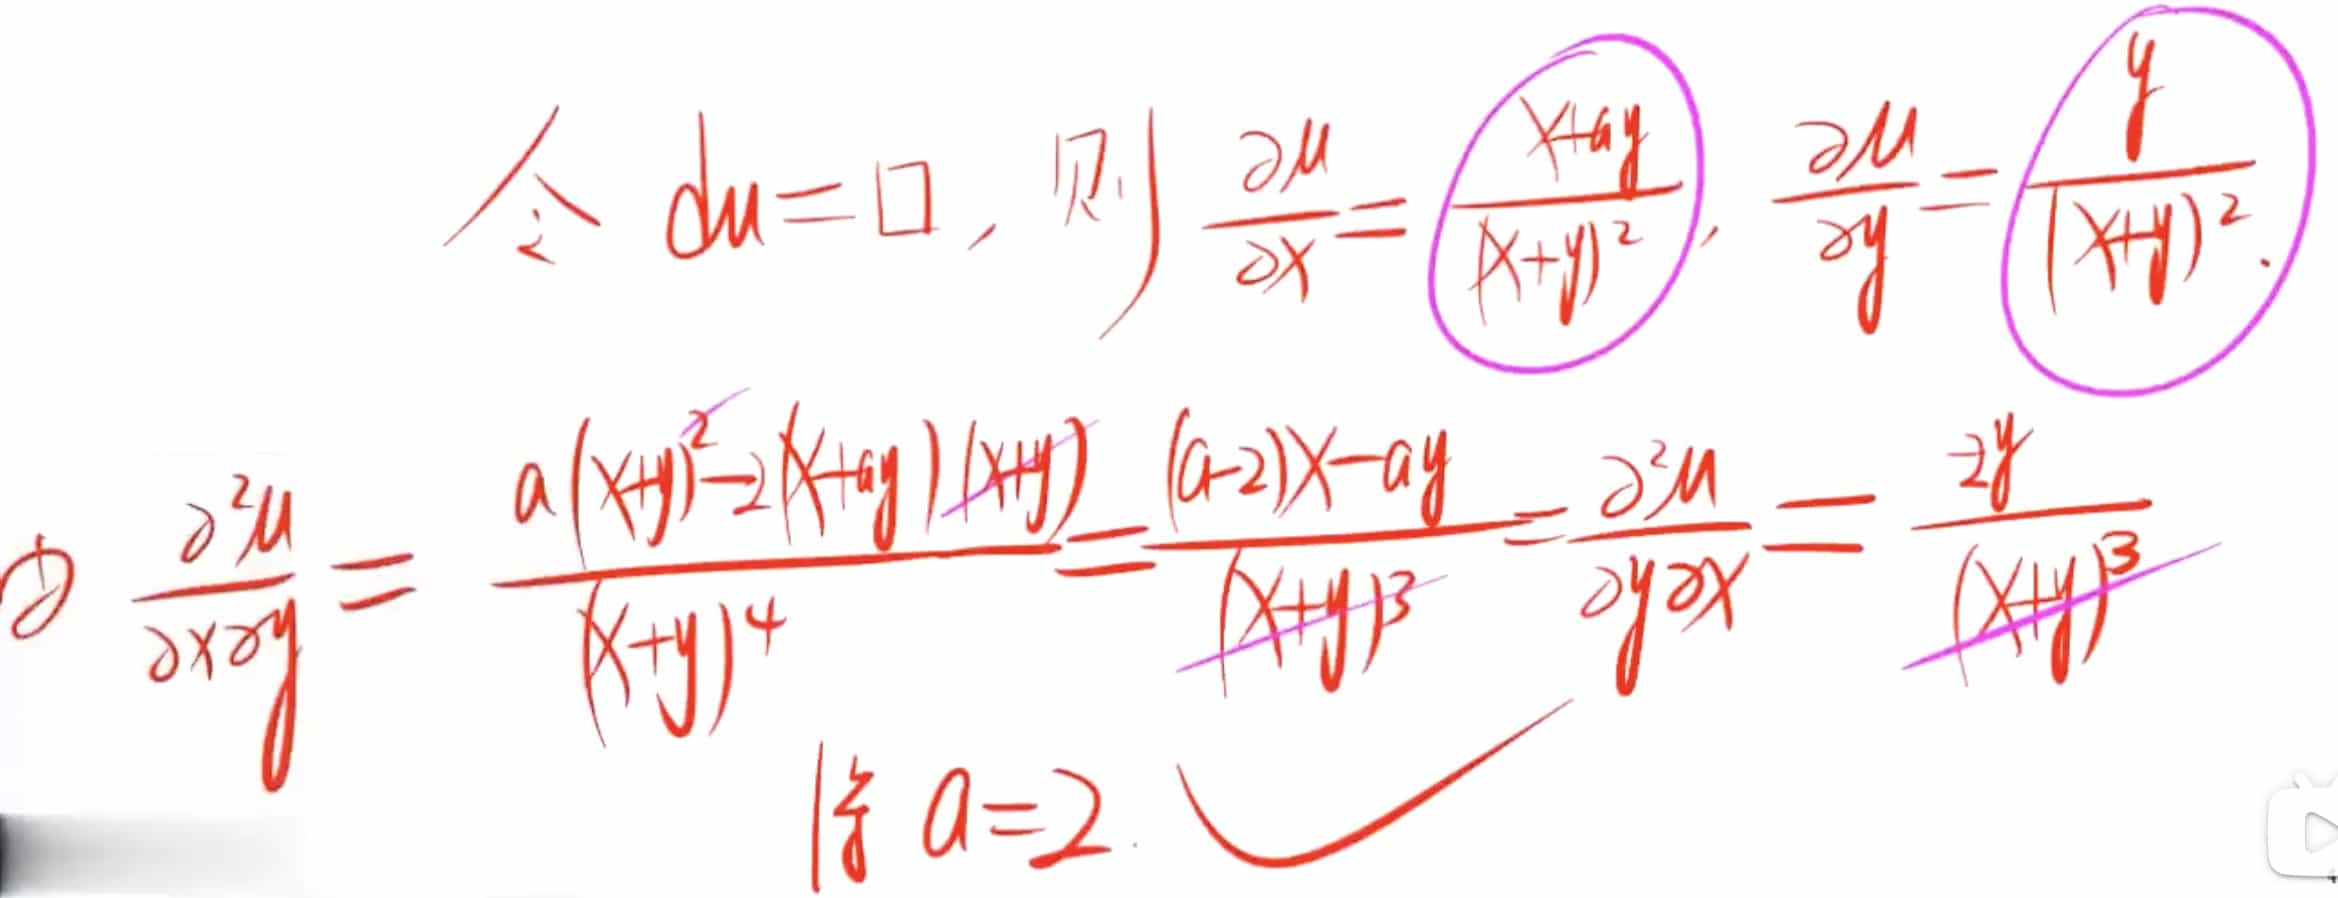 令 du=□, 则 ∂u/∂x = (x+ay)/(x+y)², ∂u/∂y = y/(x+y)².
① ∂²u/∂x∂y = (a(x+y)²-2(x+ay)(x+y))/(x+y)⁴ = ((a-2)x-ay)/(x+y)³ = ∂²u/∂y∂x = -2y/(x+y)³
a=2.